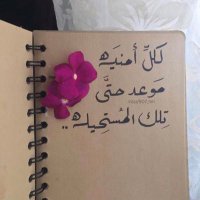 لكل أمنيه
موعد حتى
تلك المستحيله..